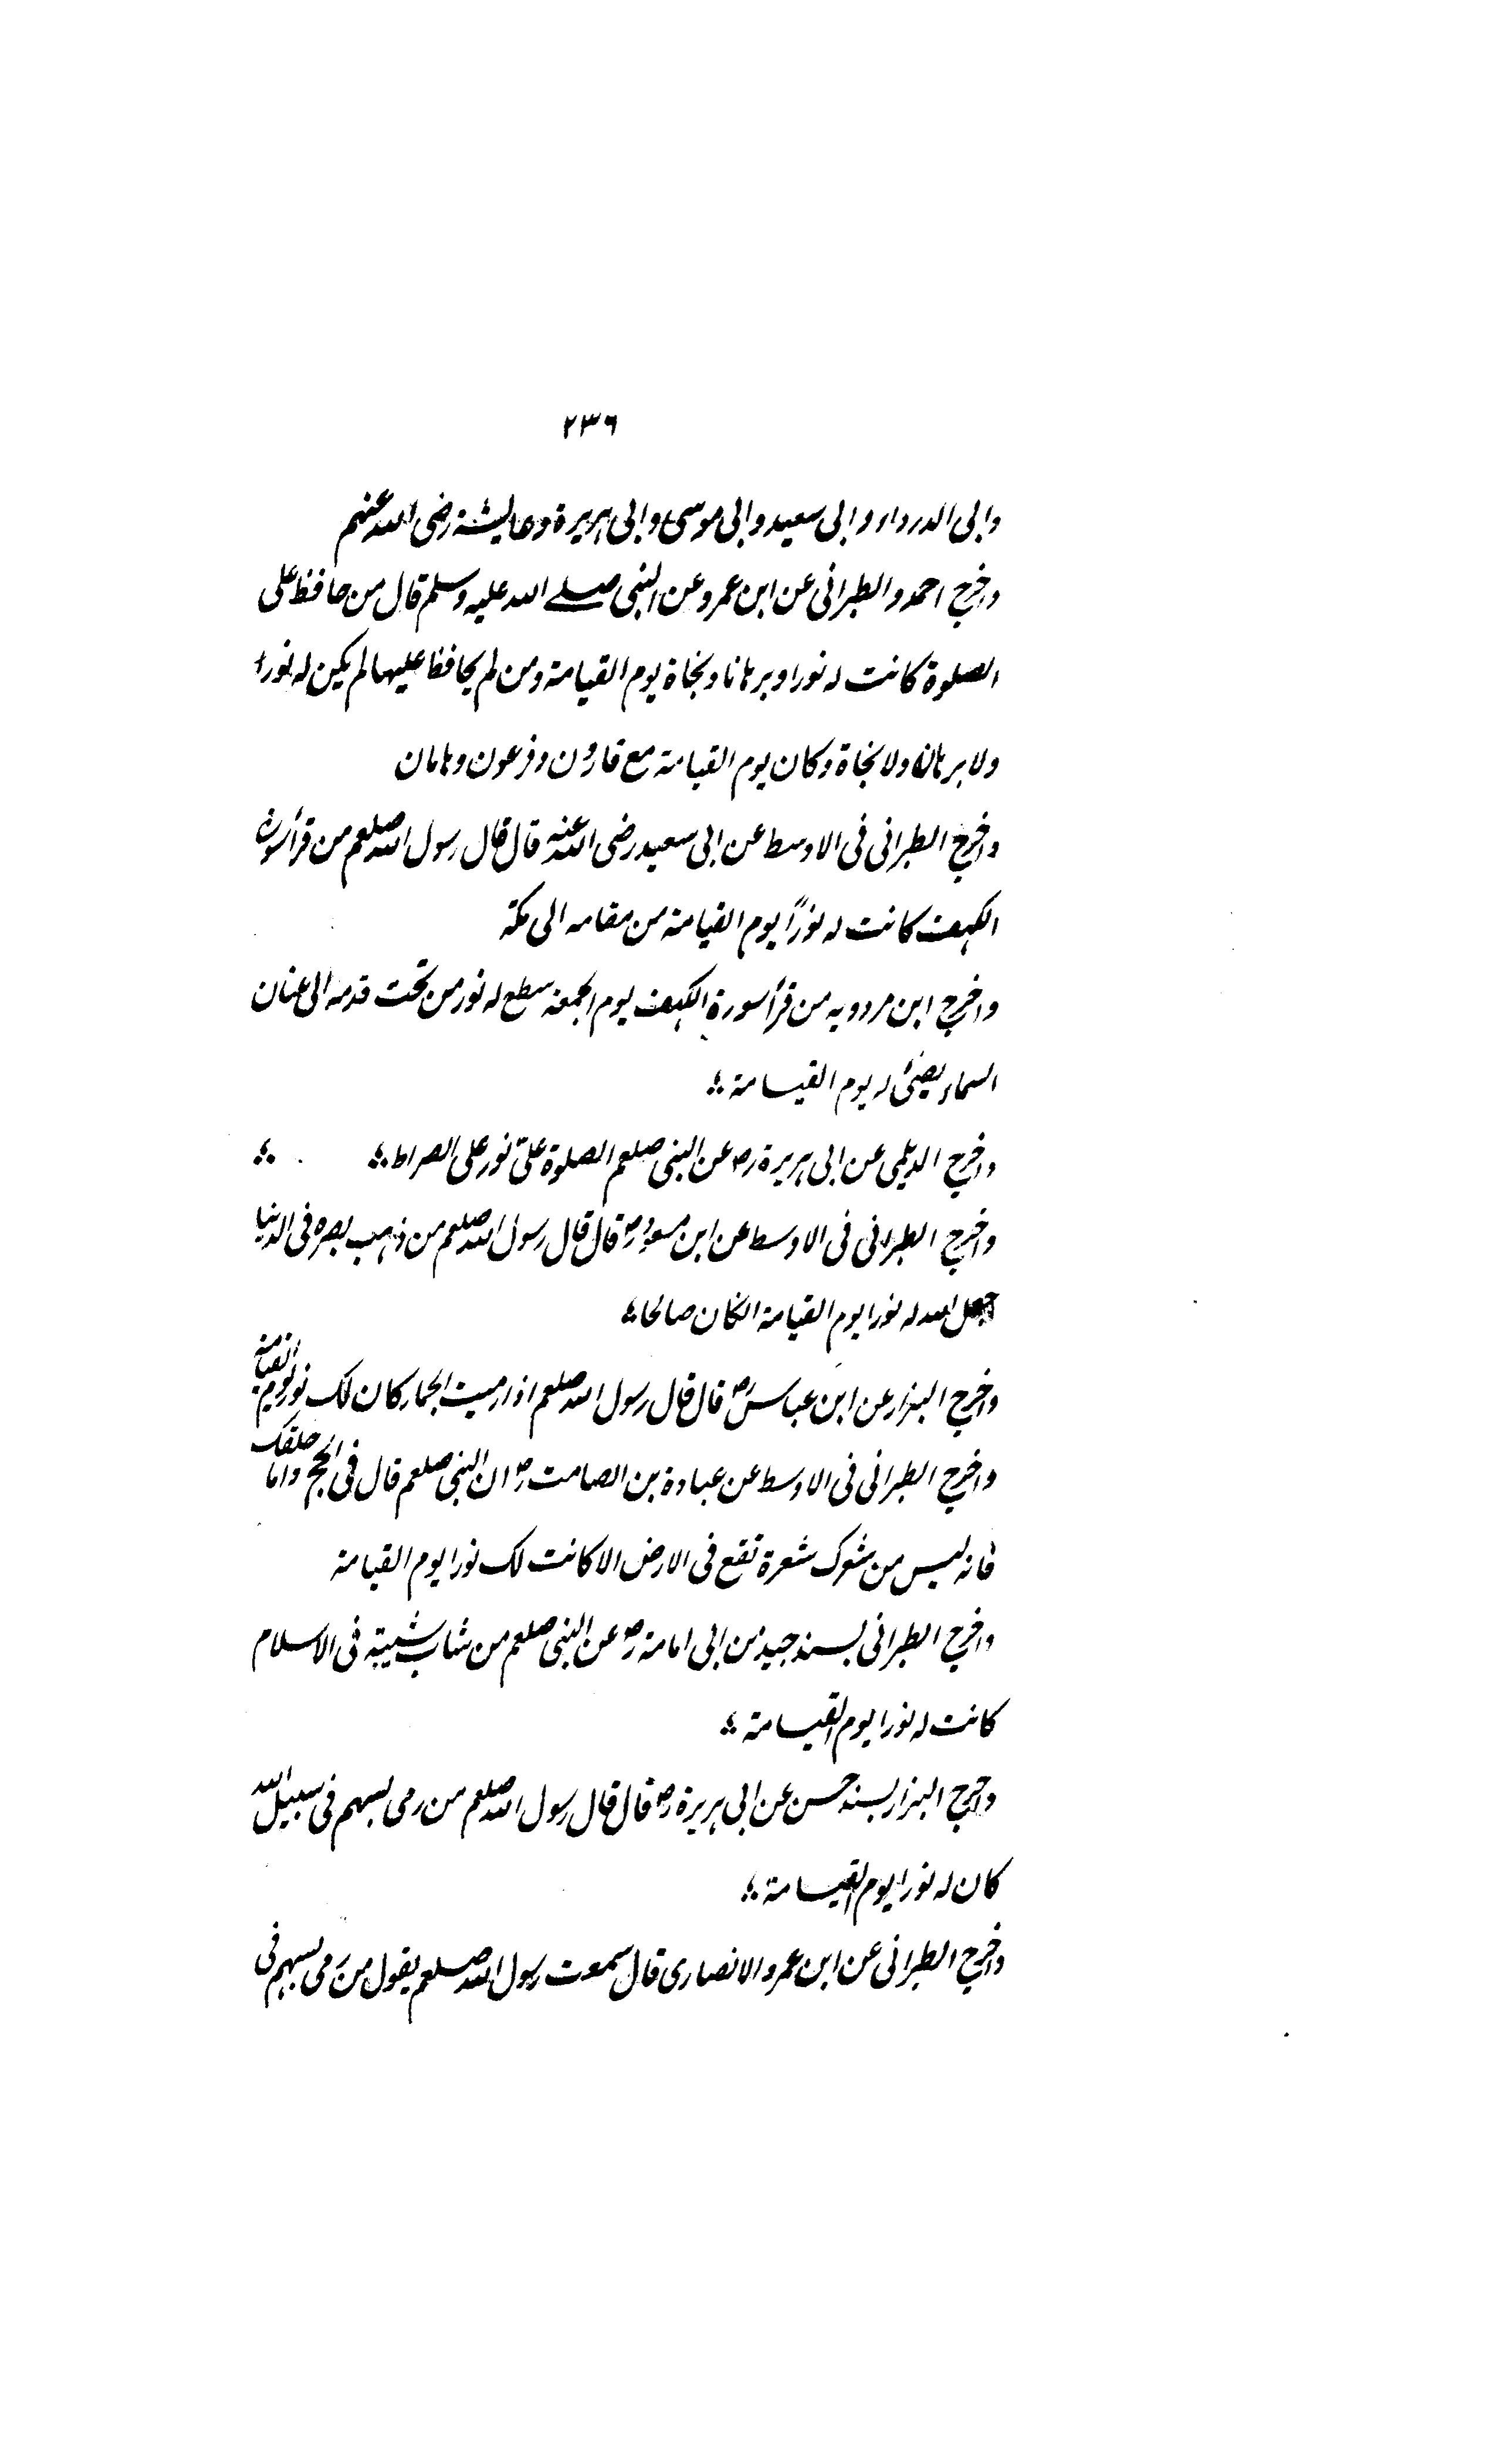 ۲۳۶
وابی الدرداء وابی سعید وابی موسیٰ وابی ہریرۃ وعایشۃ رضی اللہ عنہم
واخرج احمد والطبرانی عن ابن عمرو عن النبی صلے اللہ علیہ وسلم قال من حافظ علی
الصلوۃ کانت لہ نورا وبرہانا ونجاۃ یوم القیامۃ ومن لم یحافظ علیہا لم یکن لہ نورا
ولا برہانا ولا نجاۃ وکان یوم القیامۃ مع قارون وفرعون وہامان
واخرج الطبرانی فی الاوسط عن ابی سعید رضی اللہ عنہ قال قال رسول اللہ صلعم من قرأ سورۃ
الکہف کانت لہ نوراً یوم القیامۃ من مقامہ الی مکۃ
واخرج ابن مردویہ من قرأ سورۃ الکہف یوم الجمعۃ سطع لہ نور من تحت قدمہ الی عنان
السماء یضئ لہ یوم القیامۃ ؞
واخرج الدیلمی عن ابی ہریرۃ رض عن النبی صلعم الصلوۃ علیّ نور علی الصراط ؞ ؞
واخرج الطبرانی فی الاوسط عن ابن مسعود رض قال قال رسول اللہ صلعم من ذہب بصرہ فی الدنیا
جعل اللہ لہ نورا یوم القیامۃ انکان صالحا ؞
واخرج البزار عن ابن عباس رض قال قال رسول اللہ صلعم اذا رمیت الجمار کان لک نور یوم القیامۃ
واخرج الطبرانی فی الاوسط عن عبادۃ بن الصامت رض ان النبی صلعم قال فی الحج واما حلقک
فانہ لیس من شعرک شعرۃ تقع فی الارض الا کانت لک نورا یوم القیامۃ
واخرج الطبرانی بسند جید من ابی امامۃ رض عن النبی صلعم من شاب شیبۃ فی الاسلام
کانت لہ نورا یوم القیامۃ ؞
واخرج البزار بسند حسن عن ابی ہریرۃ رض قال قال رسول اللہ صلعم من رمی بسہم فی سبیل اللہ
کان لہ نورا یوم القیامۃ ؞
واخرج الطبرانی عن ابن عمرو الانصاری قال سمعت رسول اللہ صلعم یقول من رمی بسہم فی